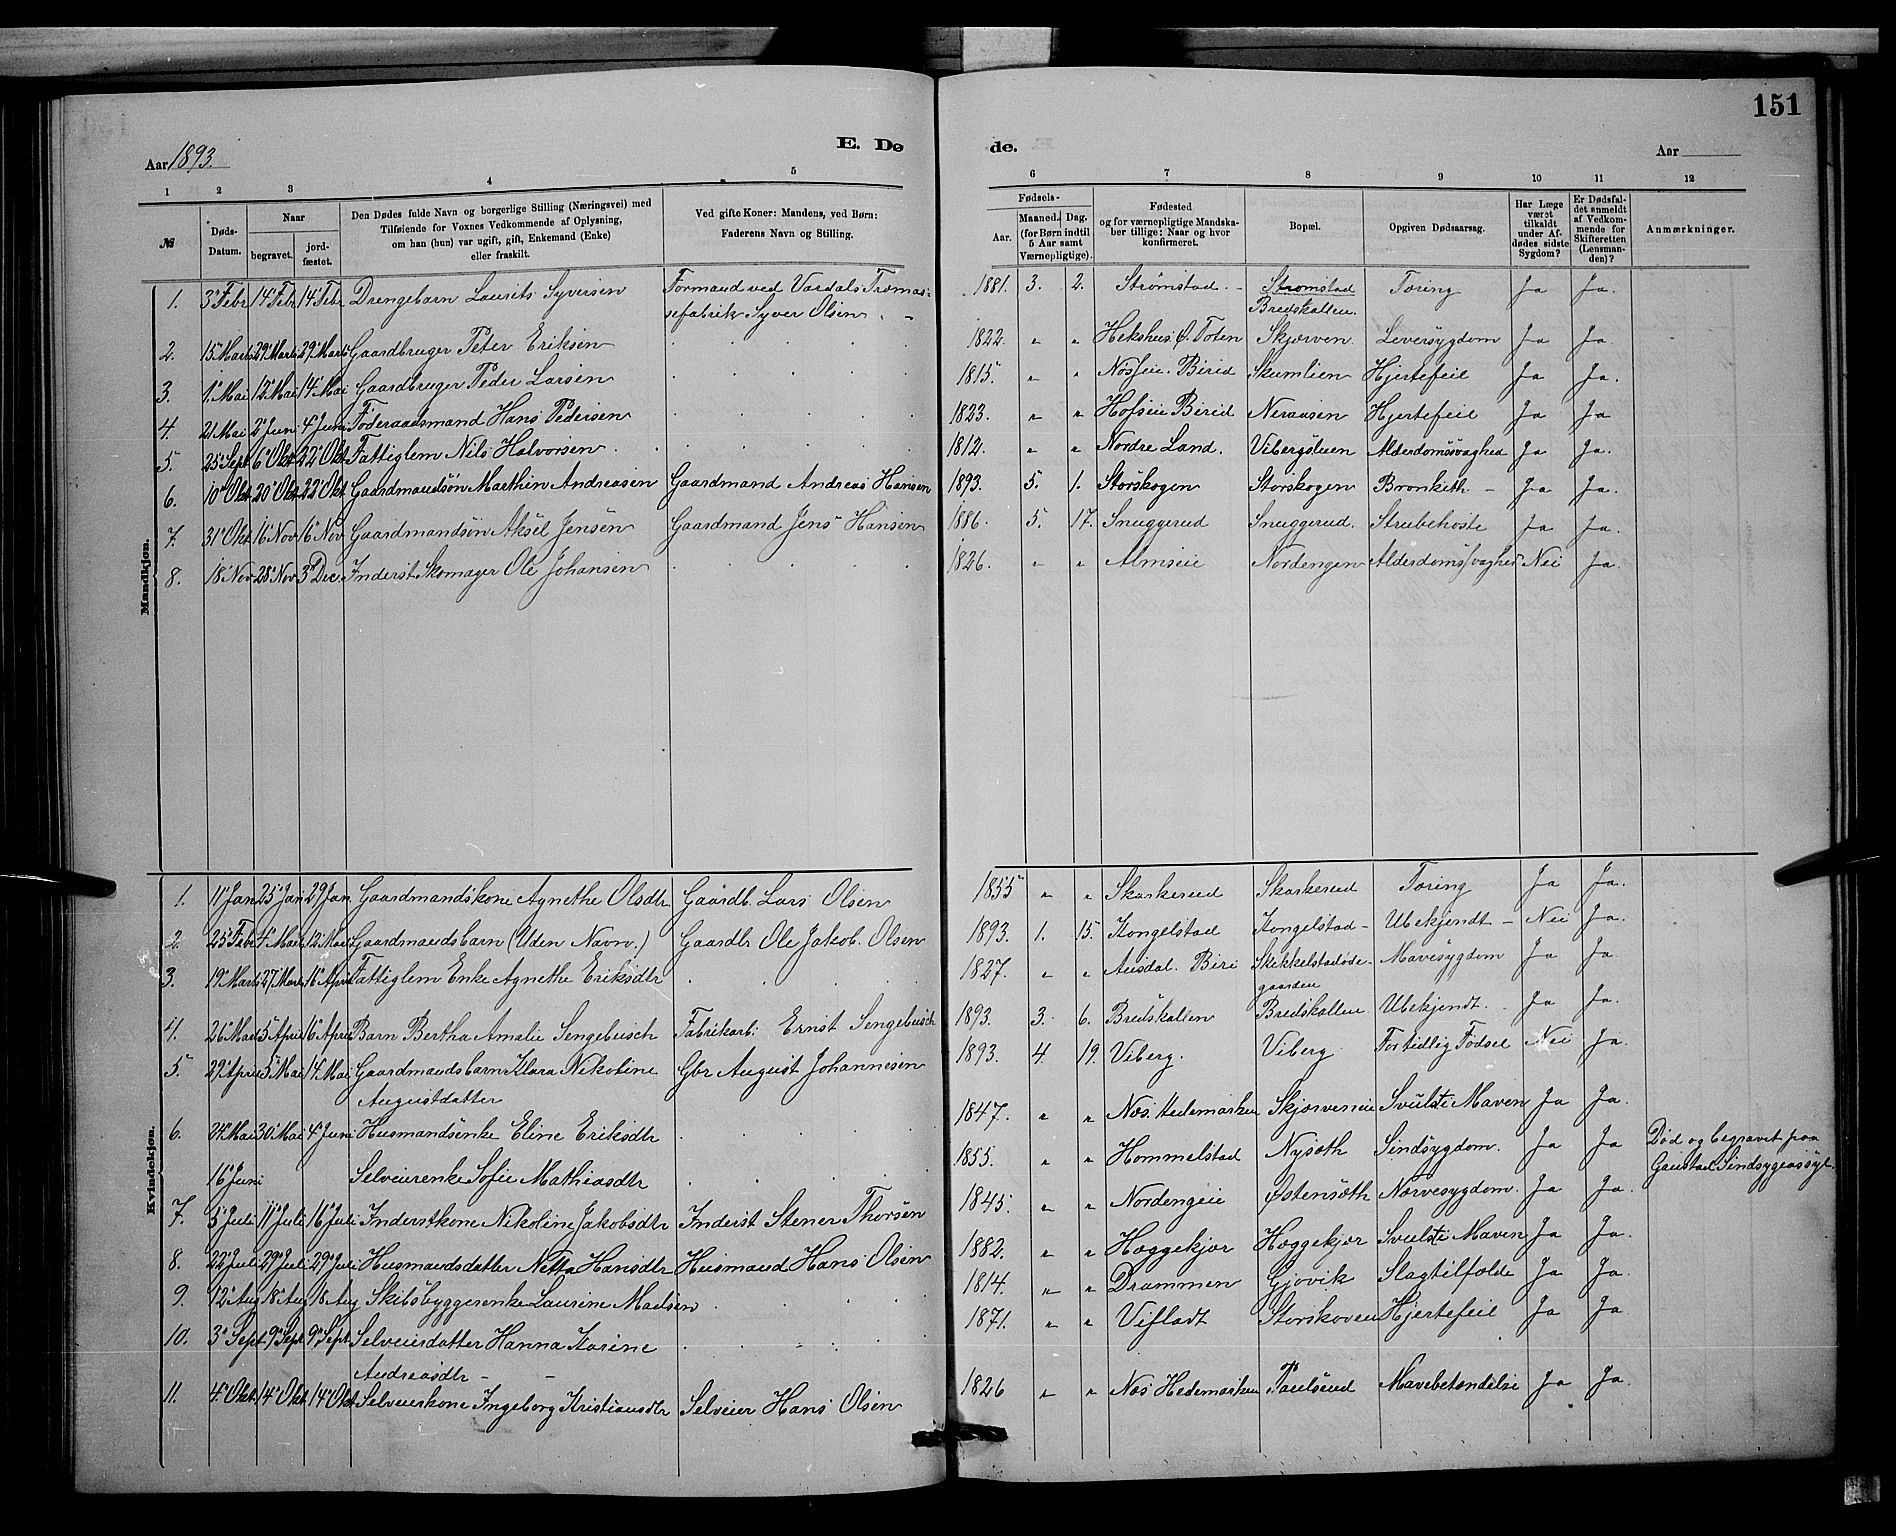 151
E. Dø
de.
Aar 1893.
Aar
1 2 3 4 5
6 7 8 9 10 11 12
№
Døds-
Datum.
Naar
begravet.
jord-
fæstet.
Den Dødes fulde Navn og borgerlige Stilling (Næringsvei) med
Tilføiende for Voxnes Vedkommende af Oplysning,
om han (hun) var ugift, gift, Enkemand (Enke)
eller fraskilt.
Ved gifte Koner: Mandens, ved Børn:
Faderens Navn og Stilling.
Fødsels-
Aar.
Maaned. Dag.
(for Børn indtil
5 Aar samt
Værnepligtige).
Fødested
og for værnepligtige Mandska-
ber tillige: Naar og hvor
konfirmeret.
Bopæl.
Opgiven Dødsaarsag.
Har Læge
været
tilkaldt
under Af-
dødes sidste
Sygdom?
Er Dødsfal-
det anmeldt
af Vedkom-
mende for
Skifteretten
(Lensman-
den)?
Anmærkninger.
Mandkjøn.
1. 3 Febr 14 Febr 14 Febr Drengebarn Laurits Syversen Formand ved Vardals Træmas- 1881. 3. 2. Strømstad. Strømstad Tæring Ja Ja.
sefabrik Syver Olsen Bredskallen.
2. 15 Marts 29 Marts 29 Marts Gaardbruger Peter Eriksen 1822. " " Hekshus. Ø. Toten Skjærven Leversygdom Ja Ja.
3. 1 Mai 12 Mai 14 Mai Gaardbruger Peder Larsen 1815. " " Biried Skumlien Hjertefeil Ja Ja.
4. 21 Mai 2 Juni 4 Juni Føderaadsmand Hans Pedersen 1823. " " Hofseie Biried Neraasen Hjertefeil Ja Ja
5. 25 Sept 6 Okt 22 Okt Fattiglem Nils Halvorsen 1812. " " Nordre Land. Vibergsluen Alderdomssvaghed Ja Ja
6. 10 Okt 20 Okt 22 Okt Gaardmandsøn Marthin Andreasen Gaardmand Andreas Hansen 1893. 5. 1. Storskogen Storskogen Bronkith. Ja Ja.
7. 31 Okt 16 Nov 16 Nov Gaardmandsøn Aksel Jensen Gaardmand Jens Hansen 1886. 5. 17. Snuggerud Snuggerud. Strubehoste Ja Ja
8. 18 Nov 28 Nov 3 Dec. Inderst. Skomager Ole Johansen 1826. " " Almseie Nordengen Alderdomssvaghed Nei Ja.
Kvindekjøn.
1. 11 Jan 25 Jan 29 Jan. Gaardmandskone Agnethe Olsdtr Gaardb. Lars Olsen 1855 " " Skarkerud Skarkerud Tæring Ja Ja.
2. 25 Febr 12 Gaardmandsbarn (Uden Navn.) Gaardbr Ole Jakob. Olsen 1893. 1. 15. Kongelstad Kongelstad Ubekjendt Nei Ja.
3. 19 Marts 27 Marts 16 April Fattiglem Enke Agnethe Eriksdtr 1827. " " Ausdal. Biri Skikkelstadøde- Mavesygdom Ja Ja.
gaarden
4. 26 5 April 16 April Barn Bertha Amalie Sengebusch Fabrikarb: Ernst Sengebusch 1893. 3. 6. Bredskallen Bredskallen Ubekjendt. Ja Ja.
5. 29 April 5 Mai 14 Mai Gaardmandsbarn Klara Nikoline Gbr August Johannesen 1893 4. 19. Viberg. Viberg Fortidlig Fødsel Nei Ja.
Augustdatter
6. Mai 30 Mai 4 Juni Husmandsenke Eline Eriksdtr 1847. " " Næs. Hedemarken Skjærveneie Svulst i Maven Ja Ja.
16 Juni Selveierenke Sofie Mathiasdtr 1855. " " Hommelstad Nysæth Sindsygdom. Ja Ja Død og begravet paa
Gaustad Sindsygeasyl.
7. 5 Juli 11 Juli 16 Juli Inderstkone Nikoline Jakobsdtr Inderst Stener Thorsen 1845. " " Nordengeie Østensæth Nervesygdom. Ja Ja.
8. 22 Juli 29 Juli 29 Juli Husmandsdatter Netta Hansdtr Husmand Hans Olsen 1882. " " Hæggekjør Hæggekjør Svulst i Maven Ja Ja.
9. 12 Aug 18 Aug 18 Aug Skibsbyggerenke Laurine Madsen 1814. " " Drammen Gjøvik Slagtilfælde Ja Ja.
10. 3 Sept 9 Sept 9 Sept Selveierdatter Hanna Karine 1871. " " Vifladt Storskoven Hjertefeil Ja Ja.
Andreasdtr
11. 4 Okt. 14 Okt 14 Okt Selveierkone Ingeborg Kristiansdtr Selveier Hans Olsen 1826 " " Næs Hedemarken Paulsrud Mavebetændelse Ja Ja.